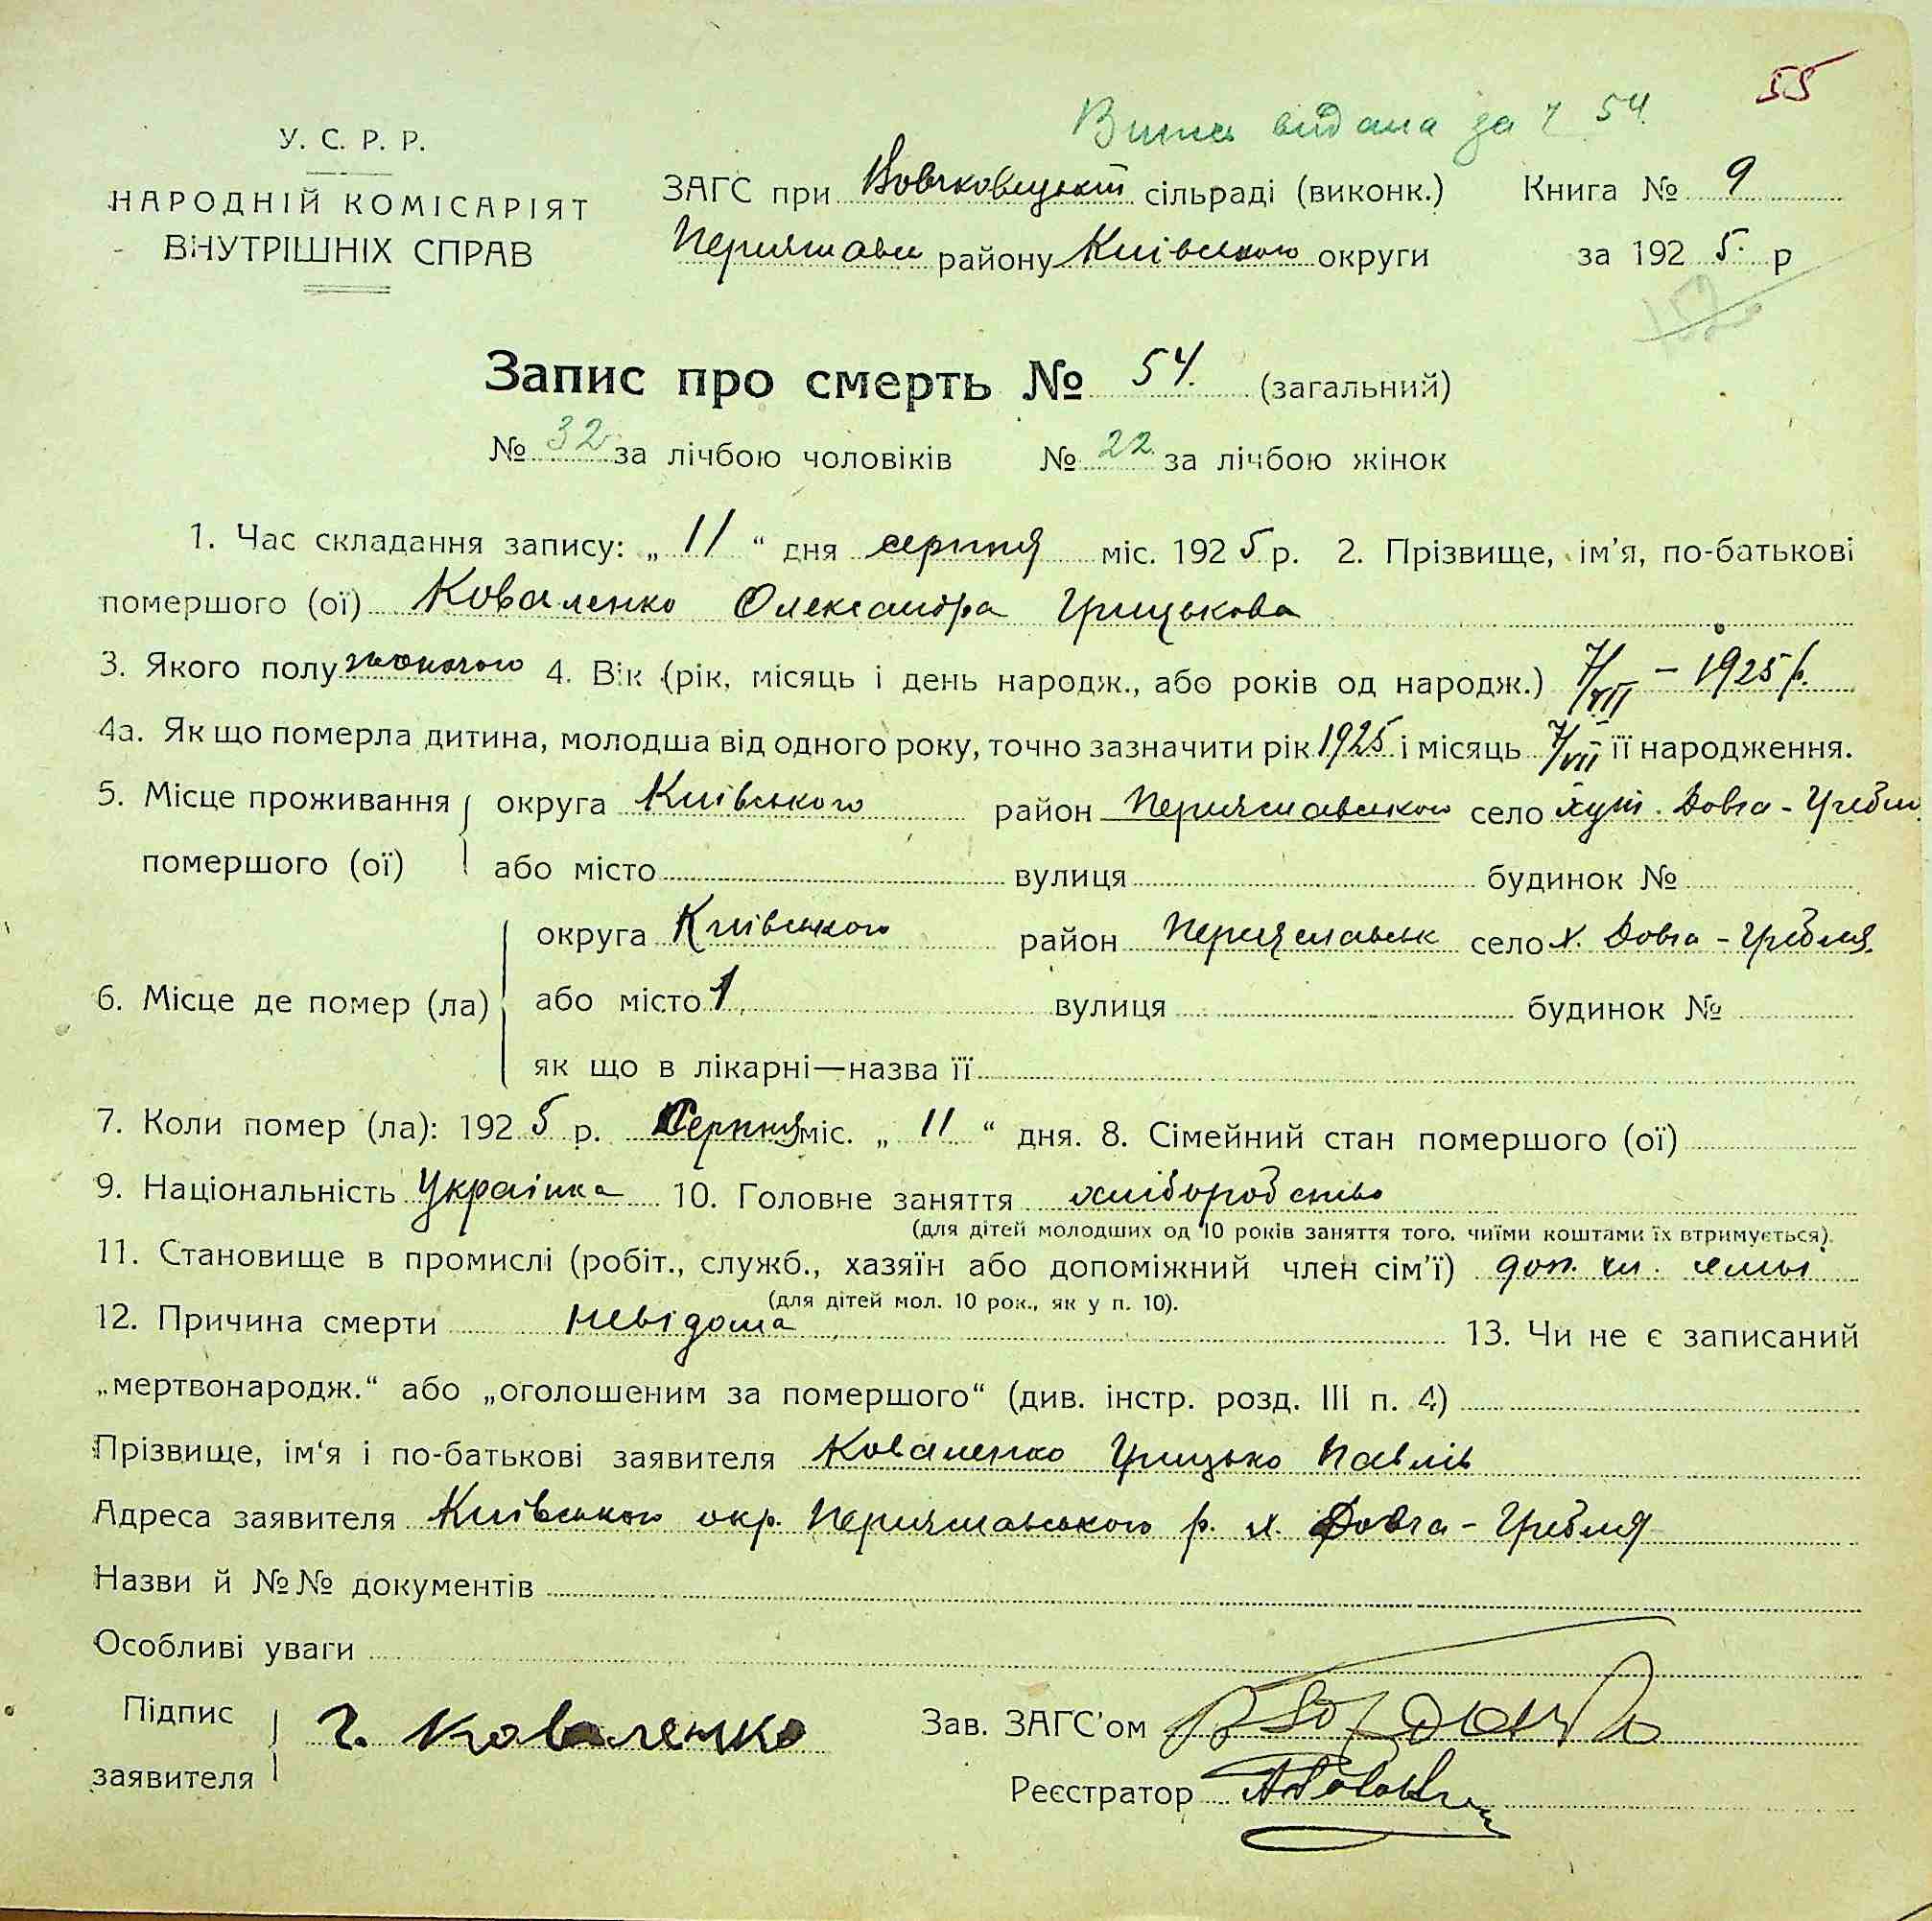 55
видана за № 54
У. С. Р. Р.
НАРОДНІЙ КОМІСАРІЯТ
ВНУТРІШНІХ СПРАВ
ЗАГС при сільраді (виконк.) Книга № 9
району Київського округи за 1925 р
Запис про смерть № 54. (загальний)
№ 32 за лічбою чоловіків № 22 за лічбою жінок
1. Час складання запису: „ 11 “ дня серпня міс. 1925 р. 2. Прізвище, ім’я, по-батькові
помершого (ої) Коваленко Олександра Грицькова
3. Якого полу жіночого 4. Вік (рік, місяць і день народж., або років од народж.) 7/VII – 1925 р.
4а. Як що померла дитина, молодша від одного року, точно зазначити рік 1925 і місяць 7/VII її народження.
5. Місце проживання округа Київського район Переяславського село хут. Довга-Гребля
помершого (ої) або місто вулиця будинок №
округа Київського район Переяславськ село х. Довга-Гребля
6. Місце де помер (ла) або місто вулиця будинок №
як що в лікарні—назва її
7. Коли помер (ла): 1925 р. Серпня міс. „ 11 “ дня. 8. Сімейний стан помершого (ої)
9. Національність Українка 10. Головне заняття хліборобство
(для дітей молодших од 10 років заняття того, чиїми коштами їх втримується).
11. Становище в промислі (робіт., служб., хазяїн або допоміжний член сім’ї) доп. чл. семьї
(для дітей мол. 10 рок., як у п. 10).
12. Причина смерти невідома 13. Чи не є записаний
„мертвонародж.“ або „оголошеним за помершого“ (див. інстр. розд. III п. 4)
Прізвище, ім‘я і по-батькові заявителя Коваленко Грицько Павлів
Адреса заявителя Київського окр. Переяславського р. х. Довга-Гребля
Назви й №№ документів
Особливі уваги
Підпис
заявителя Г. Коваленко
Зав. ЗАГС’ом
Реєстратор